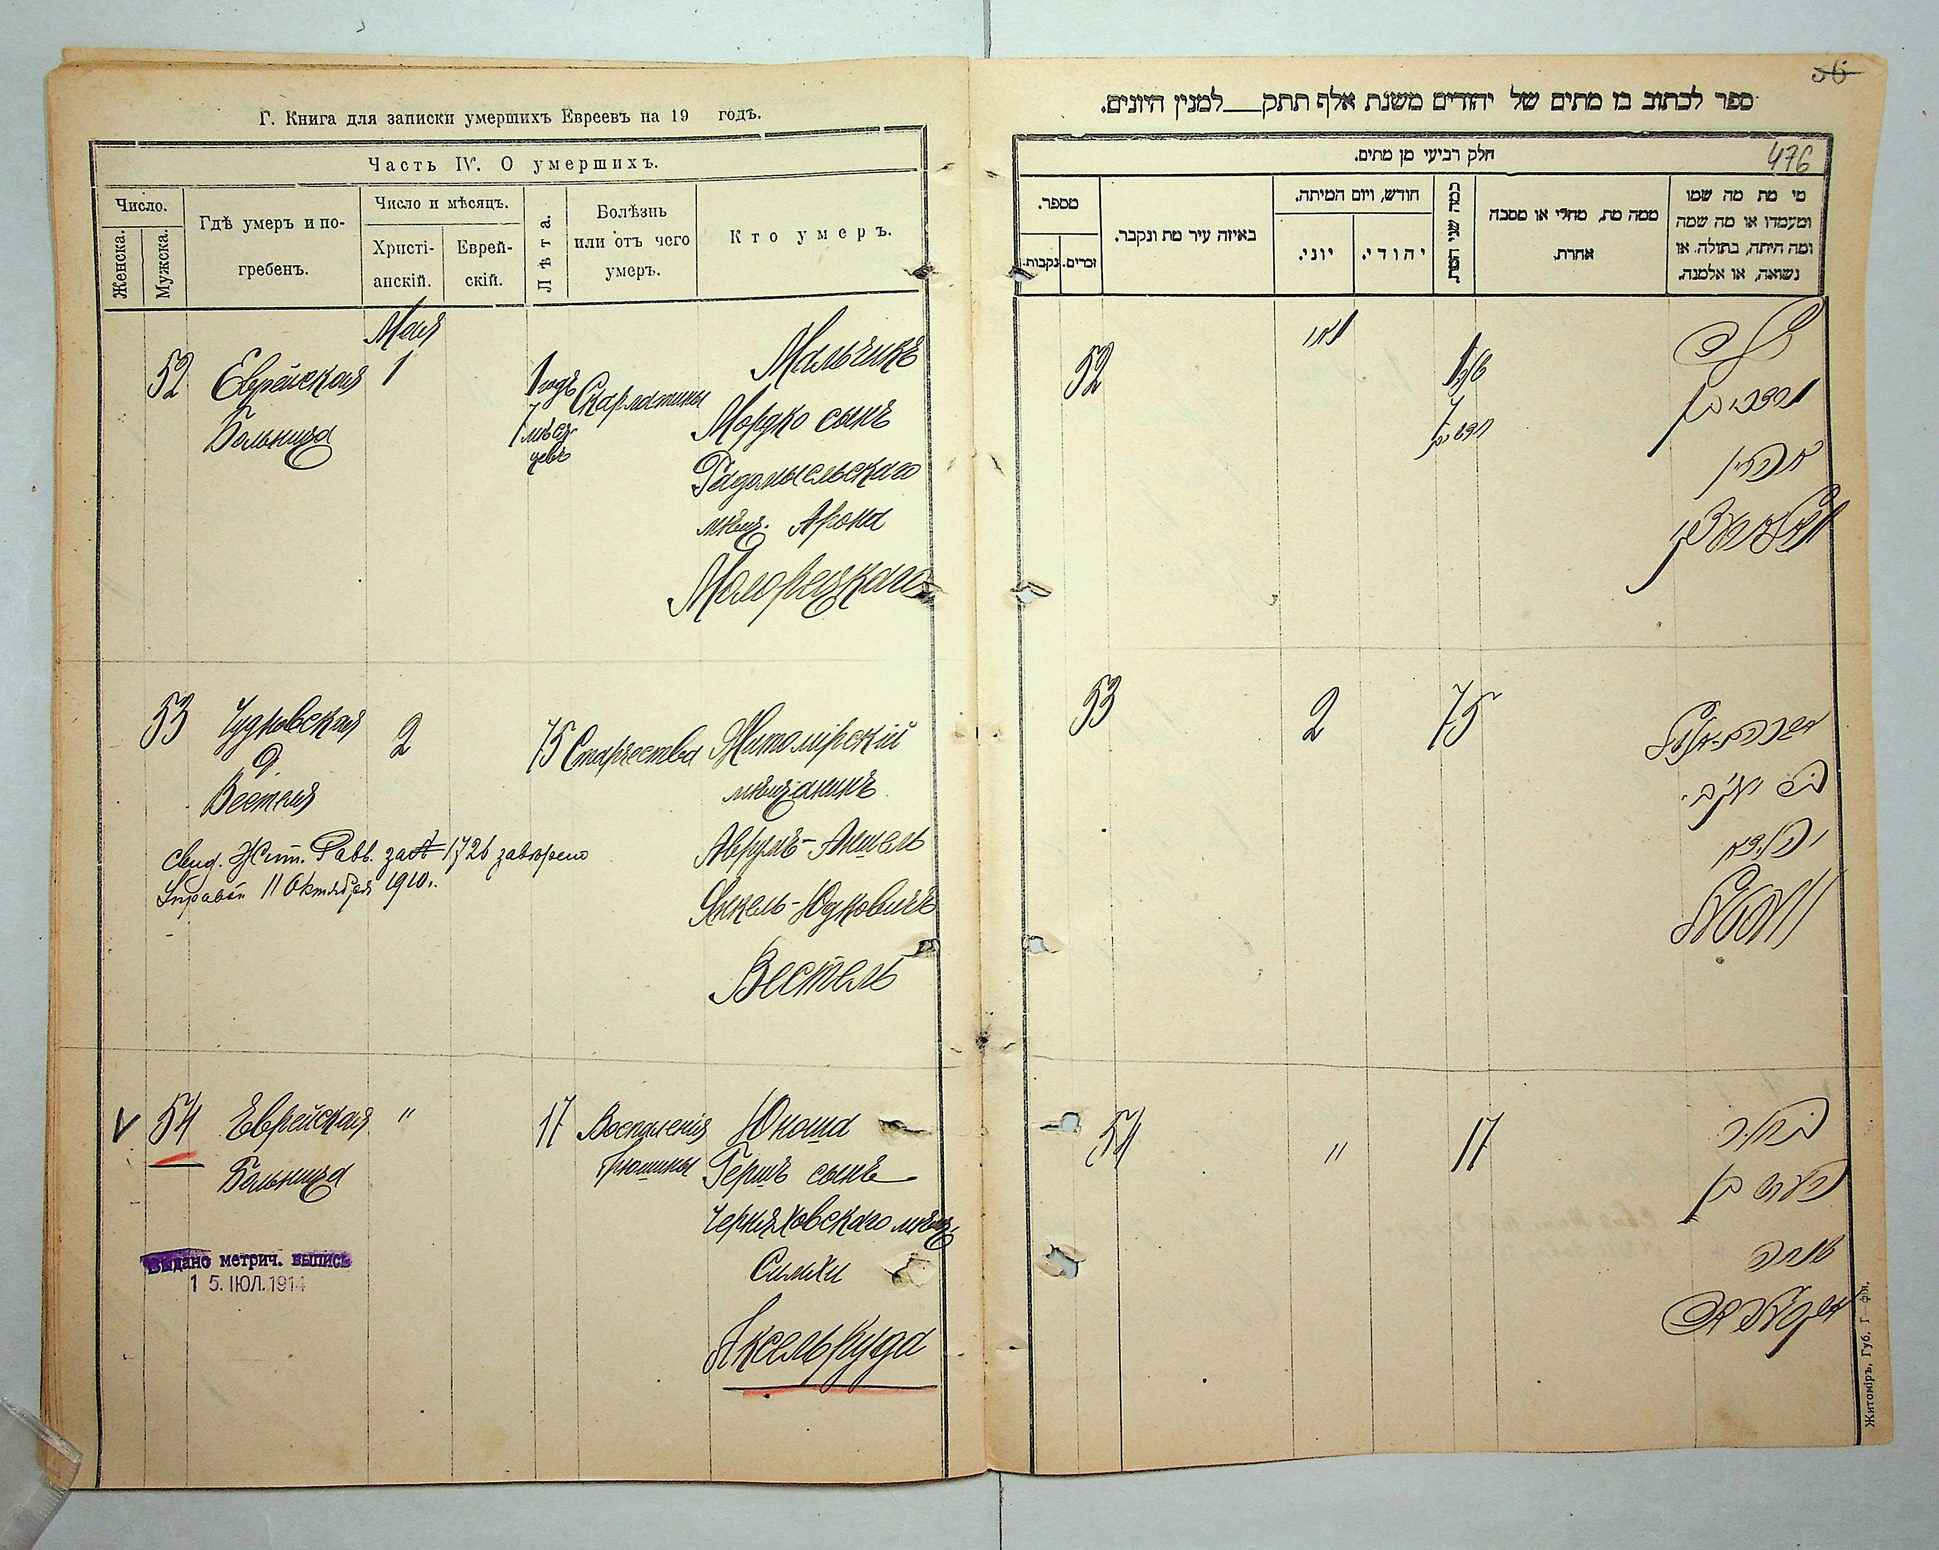 Г. Книга для записки умершихъ Евреевъ на 19 годъ.
Часть IV. О умершихъ.
Число.
Женска.
Мужска.
Гдѣ умеръ и по-
гребенъ.
Число и мѣсяцъ.
Христі-
анскій.
Еврей-
скій.
Лѣта.
Болѣзнь
или отъ чего
умеръ.
Кто умеръ.
Мая
52 Еврейская 1 1 годъ Скарлатины Мальчикъ
Больница 7 мѣся- Мордко сынъ
цевъ Радомысльскаго
мѣщ. Арона
53 Чудновская 2 75 Старчества Житомірскій
9 мѣщанинъ
Аврумъ-Аншель
Янкель-Юдковичъ
Вестель
свид. Жит. Равв. за № 1726
11 Октября 1910г.
V 54 Еврейская " 17 Воспаленія Юноша
Больница брюшины Гершъ сынъ
Черняховскаго мѣщ.
Симхи
Аксельруда
Выдано метрич. выпись
15. ІЮЛ. 1914
56
ספר לכתוב בו מתים של יהודים משנת אלף תתק___למנין היונים.
חלק רביעי מן מתים.
476
מספר.
נקבות.
זכרים.
באיזה עיר מת ונקבר.
חודש, ויום המיתה.
יוני.
יהודי.
כמה שני המת
ממה מת, מחלי או מסבה
אחרת.
מי מת מה שמו
ומעמדו או מה שמה
ומה היתה, בתולה, או
נשואה, או אלמנה.
52 מאי 1 ילד
7 מרדכי בן
אהרן
53 2 75 אברהם-אנשל
יעקב
יודקא
וועסטעל
54 " 17 בחור
הערש בן
שמחה
אקסעלראד
Житоміръ, Губ. Т—фія.